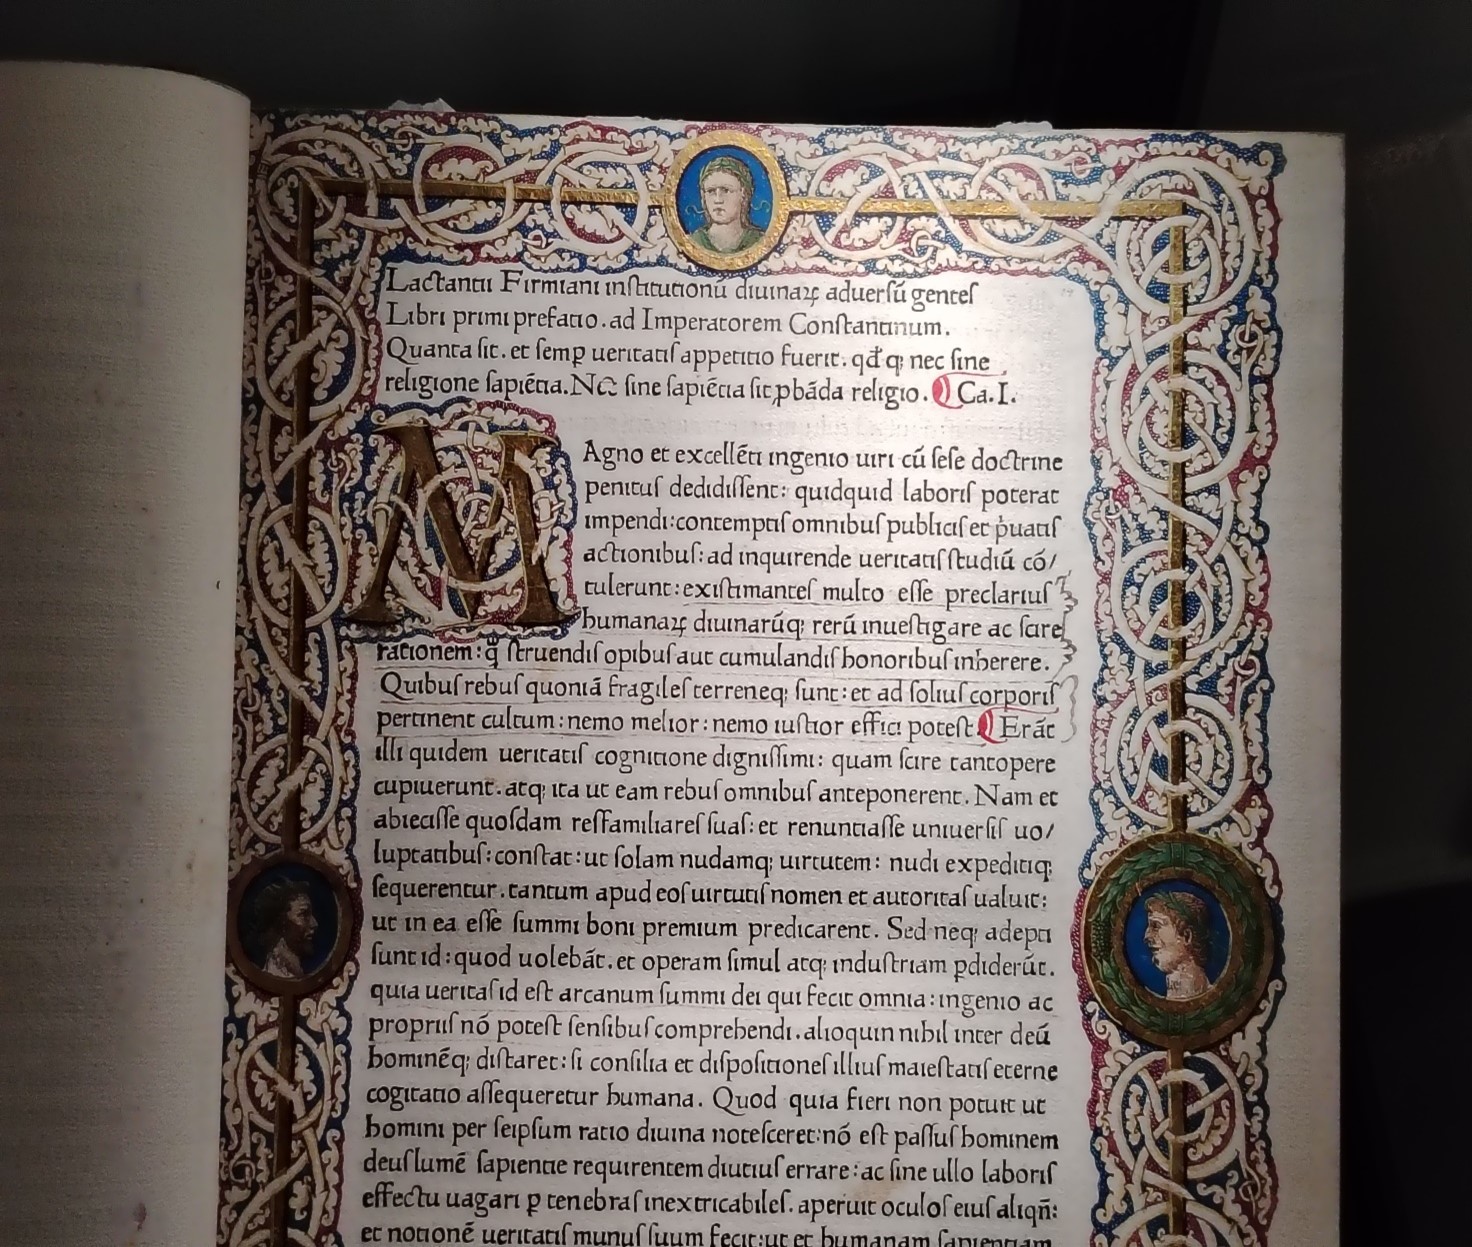 Lactantii Firmiani inſtitutionū diuinaꝝ aduerſū genteſ
Libri primi prefatio. ad Imperatorem Conſtantinum.
Quanta ſit. et ſemꝑ ueritatiſ appetitio fuerit. qđ qꝫ nec ſine
religione ſapiētia. Nec ſine ſapiētia ſit ꝓbāda religio. Ca. I.
MAgno et excellēti ingenio uiri cū ſeſe doctrine
penituſ dedidiſſent: quidquid laboriſ poterat
impendi: contemptiſ omnibuſ publiciſ et p̓uatiſ
actionibuſ: ad inquirende ueritatiſ ſtudiū cō/
tulerunt: exiſtimanteſ multo eſſe preclariuſ
humanaꝝ diuinarūqꝫ rerū inueſtigare ac ſcire
rationem: q̄ ſtruendiſ opibuſ aut cumulandiſ honoribuſ inherere.
Quibuſ rebuſ quoniā fragileſ terreneqꝫ ſunt: et ad ſoliuſ corporiſ
pertinent cultum: nemo melior: nemo iuſtior effici poteſt Erāt
illi quidem ueritatiſ cognitione digniſſimi: quam ſcire tantopere
cupiuerunt. atqꝫ ita ut eam rebuſ omnibuſ anteponerent. Nam et
abieciſſe quoſdam reſfamiliareſ ſuaſ: et renuntiaſſe uniuerſiſ uo/
luptatibuſ: conſtat: ut ſolam nudamqꝫ uirtutem: nudi expeditiqꝫ
ſequerentur. tantum apud eoſ uirtutiſ nomen et autoritaſ ualuit:
ut in ea eſſe ſummi boni premium predicarent. Sed neqꝫ adepti
ſunt id: quod uolebāt. et operam ſimul atqꝫ induſtriam ꝑdiderūt.
quia ueritaſ id eſt arcanum ſummi dei qui fecit omnia: ingenio ac
propriiſ nō poteſt ſenſibuſ comprehendi. alioquin nihil inter deū
hominēqꝫ diſtaret: ſi conſilia et diſpoſitioneſ illiuſ maieſtatiſ eterne
cogitatio aſſequeretur humana. Quod quia fieri non potuit ut
homini per ſeipſum ratio diuina noteſceret: nō eſt paſſuſ hominem
deuſ lumē ſapientie requirentem diutiuſ errare: ac ſine ullo laboriſ
effectu uagari ꝑ tenebraſ inextricabileſ. aperuit oculoſ eiuſ aliqn̄:
et notionē ueritatiſ munuſ ſuum fecit: ut et humanam ſapientiam